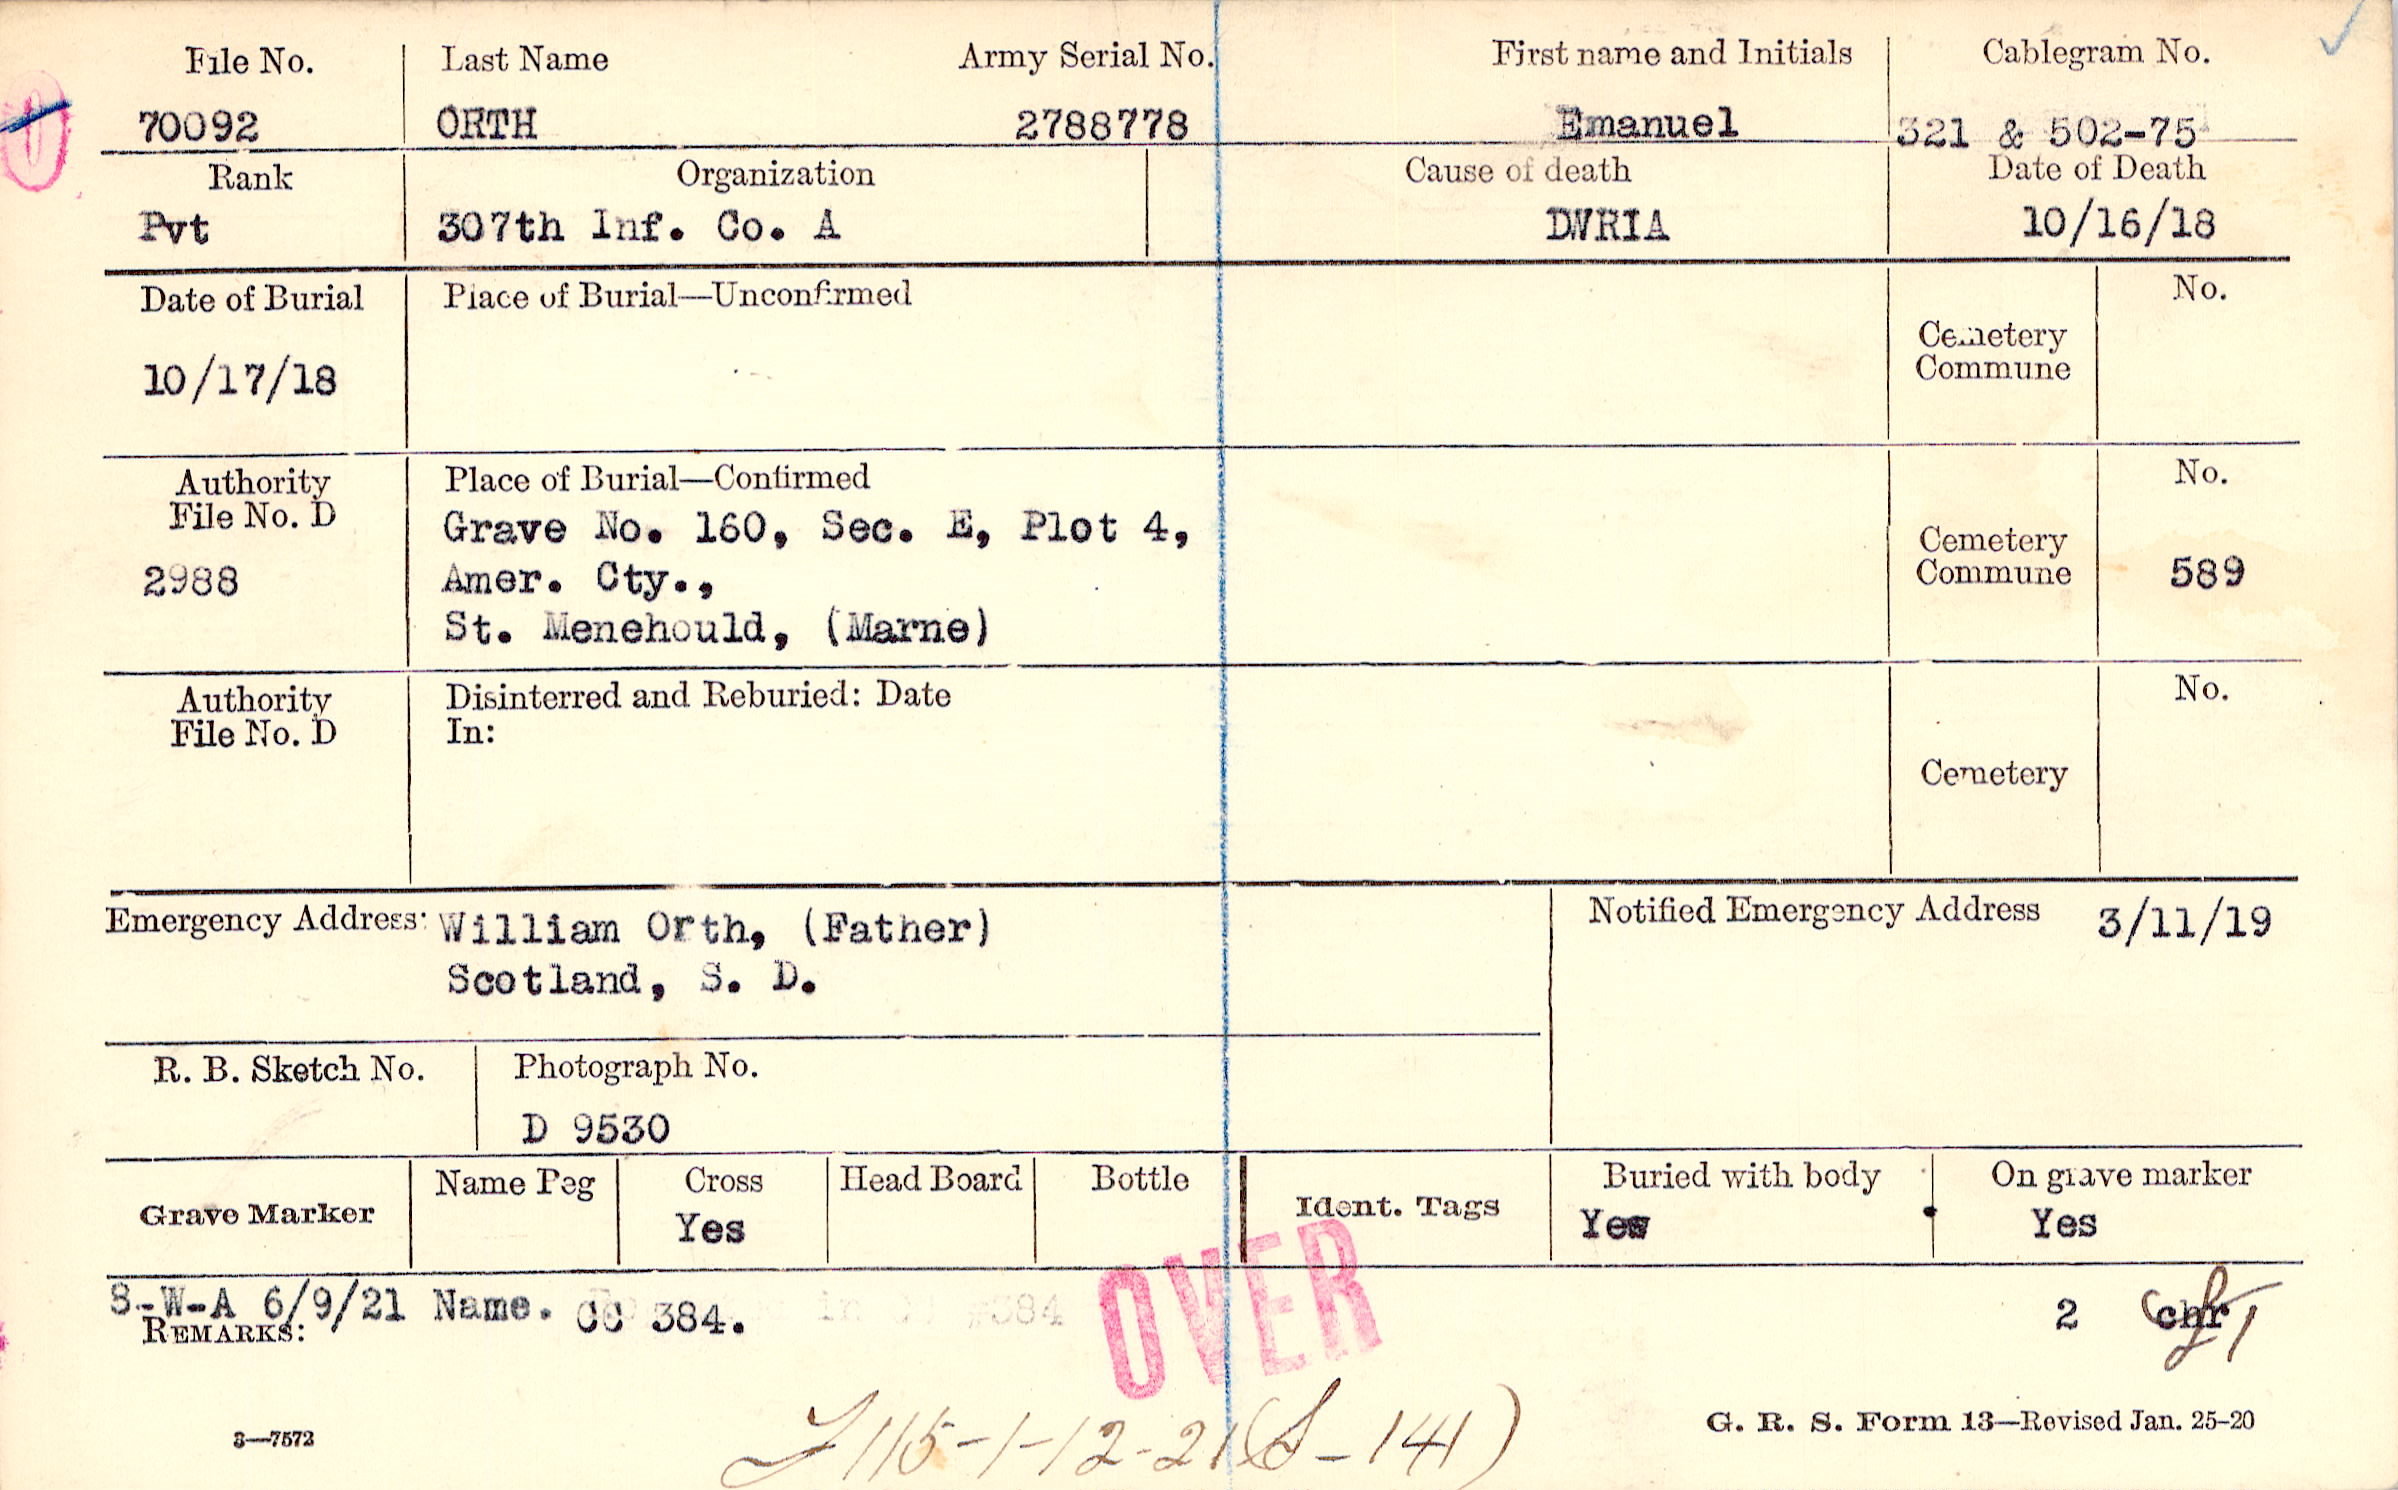 File No. Last Name Army Serial No. First name and Initials Cablegram No.
70092 ORTH 2788778 Emanuel 321 & 502-75
Rank Organization Cause of death Date of Death
Pvt 307th Inf. Co. A DWRIA 10/16/18
Date of Burial Place of Burial—Unconfirmed No.
Cemetery
Commune
10/17/18
Authority Place of Burial—Confirmed No.
File No. D
Grave No. 160, Sec. E, Plot 4,
Cemetery
Commune
2988 Amer. Cty., 589
St. Menehould, (Marne)
Authority Disinterred and Reburied: Date No.
File No. D In:
Cemetery
Emergency Address: William Orth, (Father) Notified Emergency Address 3/11/19
Scotland, S. D.
R. B. Sketch No. Photograph No.
D 9530
Grave Marker Name Peg Cross Head Board Bottle Ident. Tags Buried with body On grave marker
Yes Yes Yes
S-W-A 6/9/21 Name. CC 384. 2 chr
REMARKS:
OVER
115-1-12-21 (S-141)
3—7572 G. R. S. Form 13—Revised Jan. 25-20